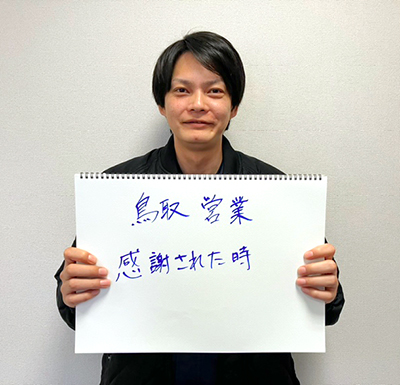 鳥取 営業
感謝された時